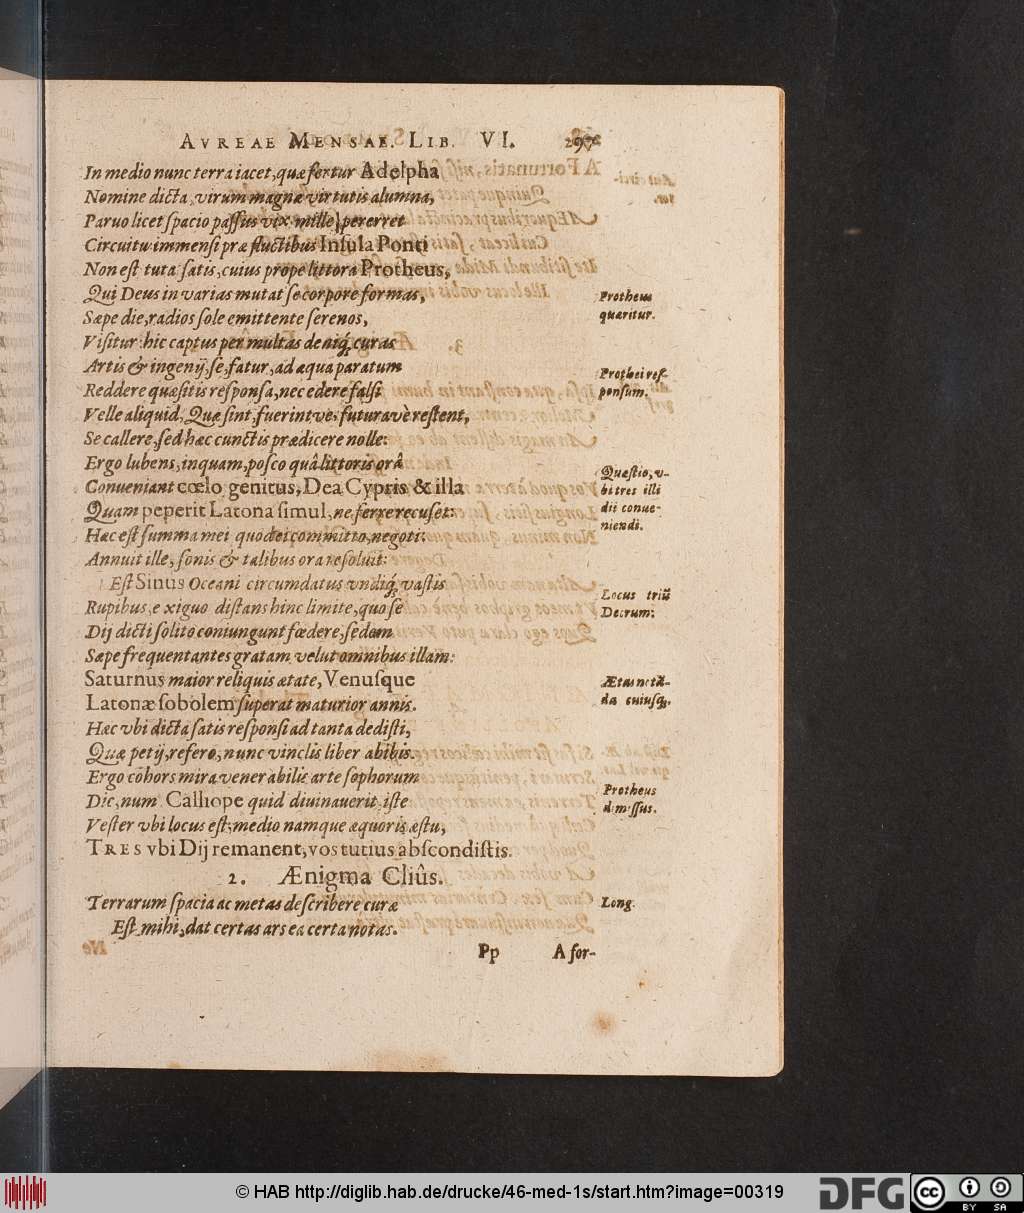 AVREAE MENSAE. LIB. VI. 297
In medio nunc terra iacet, quæ fertur Adelpha
Nomine dicta, virum magnæ virtutis alumna,
Paruo licet ſpacio paſſus vix mille pererret
Circuitu immenſi præ fluctibus Inſula Ponti
Non eſt tuta ſatis, cuius prope littora Protheus,
Qui Deus in varias mutat ſe corpore formas,
Protheus
Sæpe die, radios ſole emittente ſerenos,
quæritur.
Viſitur hic captus per multas deniq; curas
Artis & ingenij, ſe, fatur, ad æqua paratum
Prothei reſ-
Reddere quæſitis reſponſa, nec edere falſi
ponſum.
Velle aliquid, Quæ ſint, fuerint ve, futura ve reſtent,
Se callere, ſed hæc cunctis prædicere nolle:
Ergo lubens, inquam, poſco quâ littoris orâ
Quæſtio, v-
Conueniant cœlo genitus, Dea Cypris & illa
bi tres illi
Quam peperit Latona ſimul, ne ferre recuſet:
dii conue-
niendi.
Hæc eſt ſumma mei quod ei committo, negoti:
Annuit ille, ſonis & talibus ora reſoluit:
Eſt Sinus Oceani circumdatus vndiq; vaſtis
Locus triũ
Rupibus, exiguo diſtans hinc limite, quo ſe
Deorum:
Dij dicti ſolito coniungunt fœdere, ſedem
Sæpe frequentantes gratam velut omnibus illam:
Saturnus maior reliquis ætate, Venuſque
Ætas notã-
Latonæ ſobolem ſuperat maturior annis.
da cuiuſq;.
Hæc vbi dicta ſatis reſponſi ad tanta dediſti,
Quæ petij, refero, nunc vinclis liber abibis.
Ergo cohors mira venerabilis arte ſophorum
Protheus
Dic, num Calliope quid diuinauerit, iſte
dimiſſus.
Veſter vbi locus eſt, medio namque æquoris æſtu,
TRES vbi Dij remanent, vos tutius abſcondiſtis.
2. Ænigma Cliûs.
Terrarum ſpacia ac metas deſcribere curæ
Long.
Eſt mihi, dat certas ars ea certa notas.
Pp A for-
© HAB http://diglib.hab.de/drucke/46-med-1s/start.htm?image=00319
DFG
cc BY SA